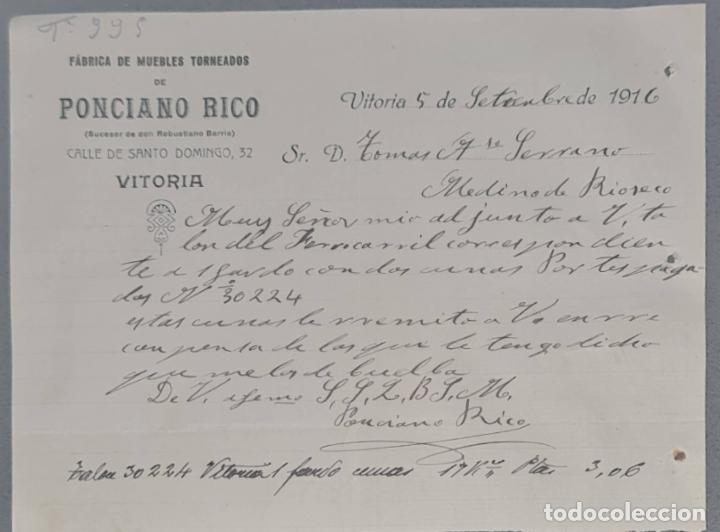 Nº 995
FÁBRICA DE MUEBLES TORNEADOS
DE
PONCIANO RICO
(Sucesor de don Robustiano Barria)
CALLE DE SANTO DOMINGO, 32
VITORIA
Vitoria 5 de Setienbre de 1916
Sr. D. Tomas A de Serrano
Medino de Rioseco
Muy Señor mio adjunto a V, ta
lon del Ferrocarril correspondien
te a 1 fardo con dos cunas Portes paga
dos Nº 30224
estas cunas le rremito a Vd en rre
conpensa de las que le tengo dicho
que me las debuelba
De V. S. S. Q. B. S. M.
Ponciano Rico
Talon 30224 Vitoria 1 fardo cunas 17 K Ptas 3,06
todocoleccion.net